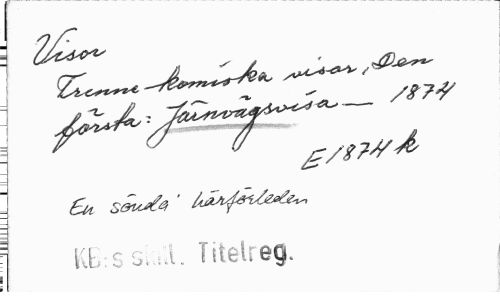 Visor
Trenne komiska visor, Den
första: Järnvägsvisa — 1874
E 1874 k
En sönda' härförleden
KB:s saml. Titelreg.